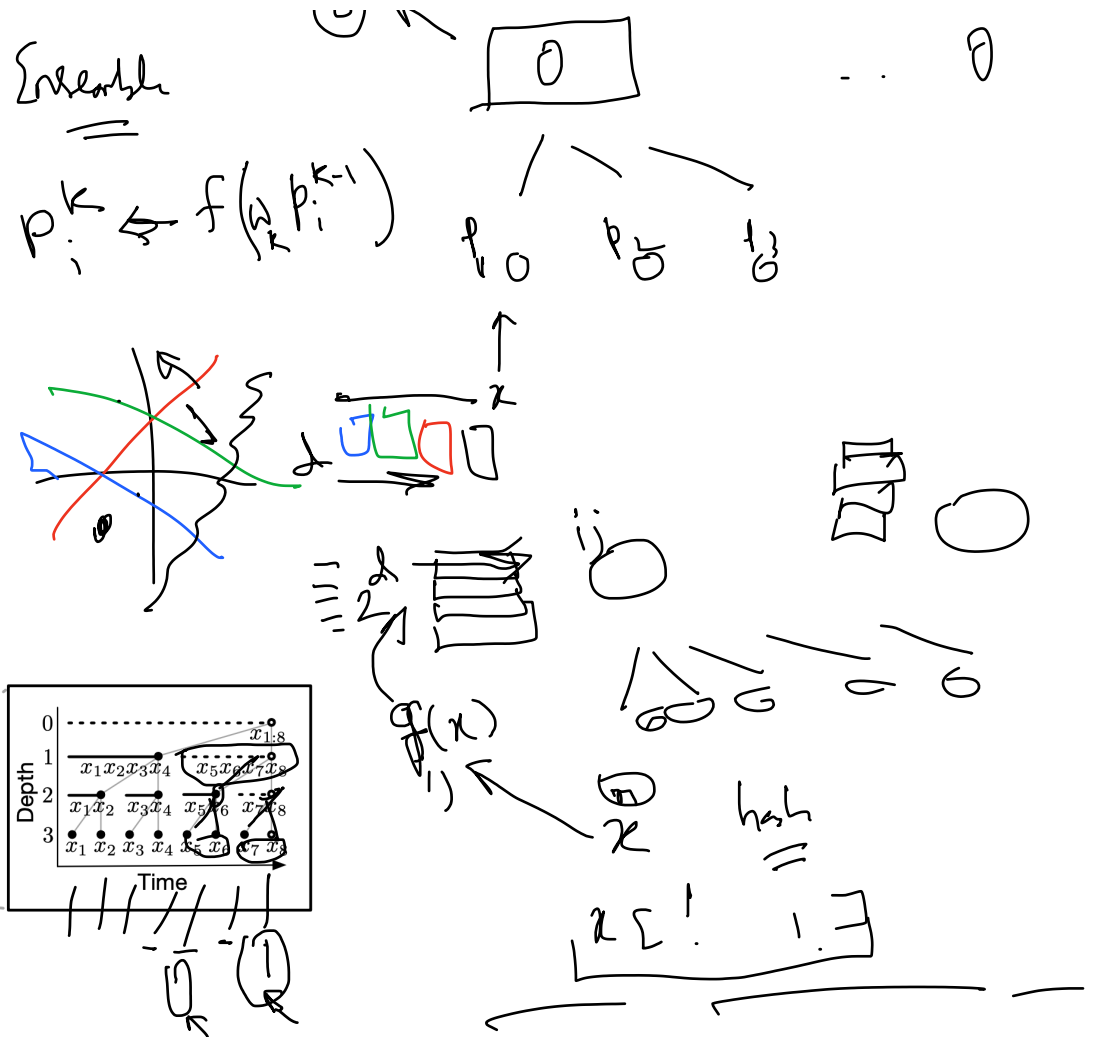 Ensemble
0
0
p_i^k ← f(w_k p_i^{k-1})
p_1 0
p_2 0
p_3 0
x
d
i)
d
2
g(x)
i)
n
x
hash
x [ ! 1. ]
Depth
0
x_{1:8}
1
x_1x_2x_3x_4 x_5x_6x_7x_8
2
x_1x_2 x_3x_4 x_5x_6 x_7x_8
3
x_1 x_2 x_3 x_4 x_5 x_6 x_7 x_8
Time
0
1